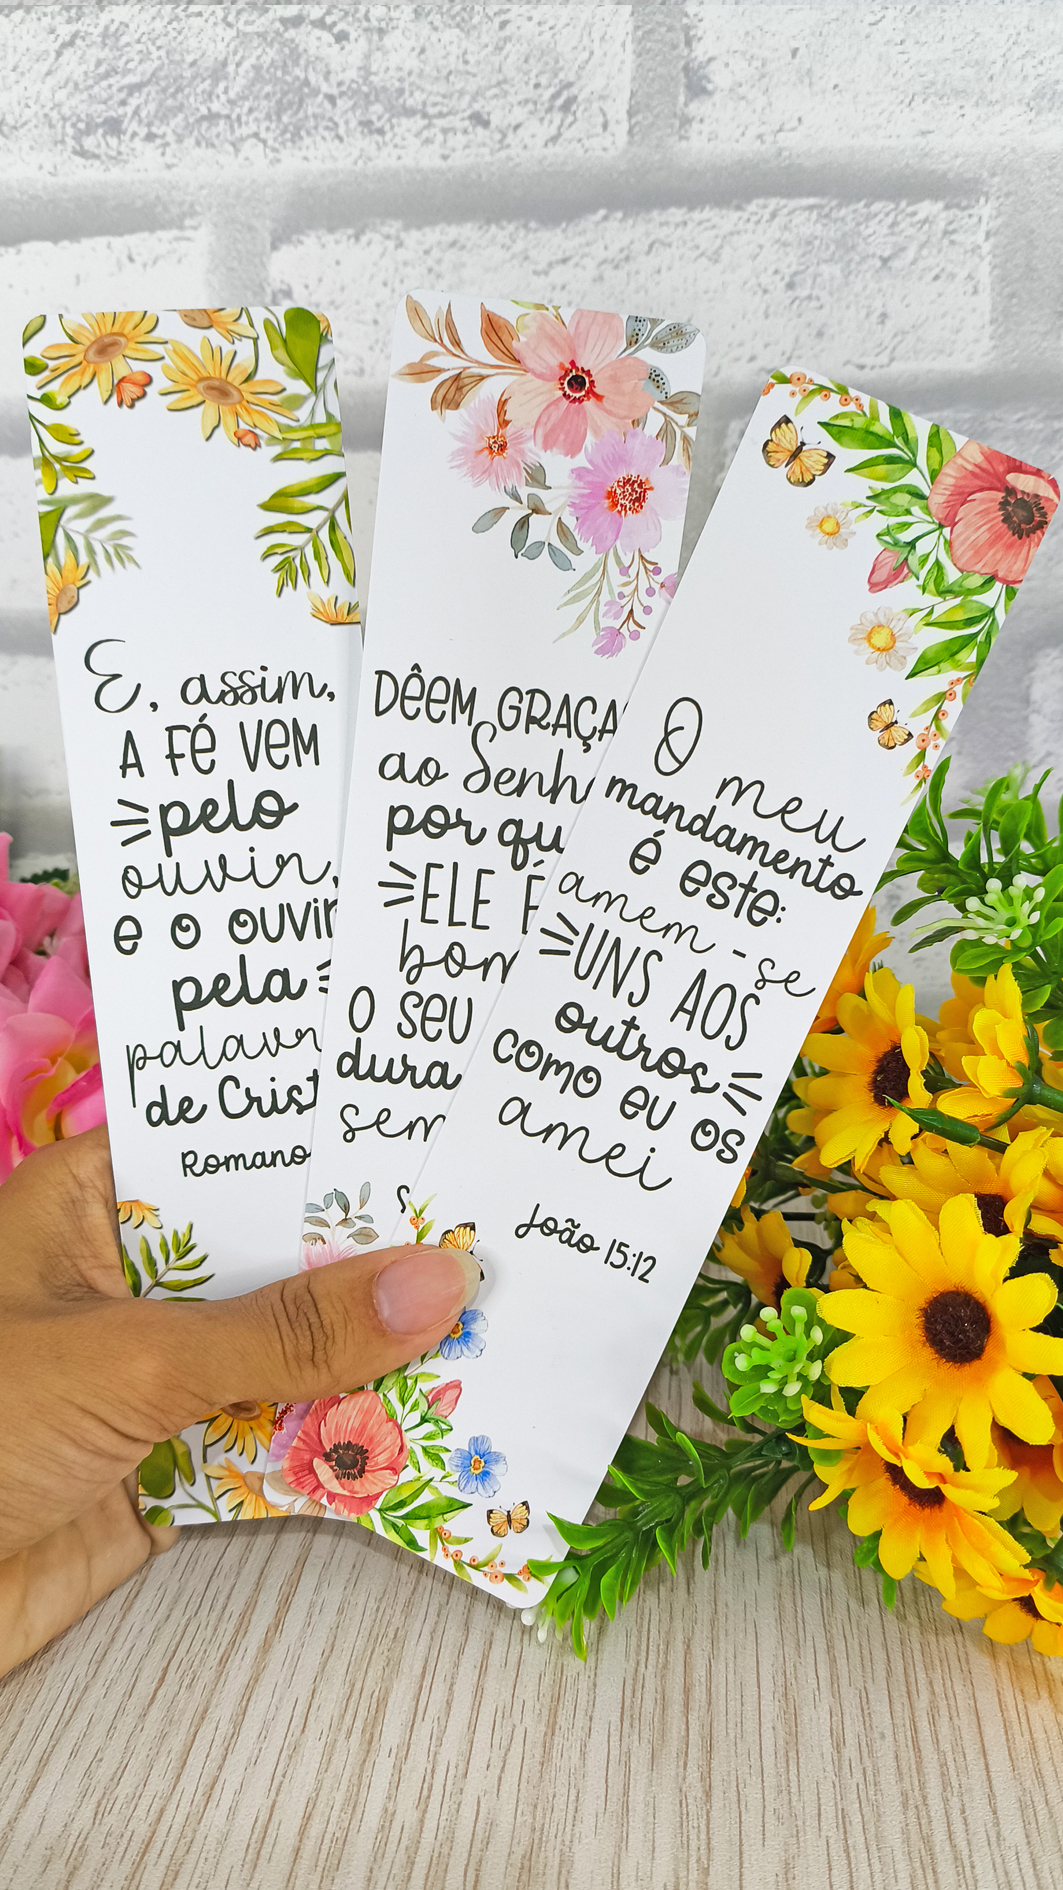 E, assim,
A FÉ VEM
pelo
ouvir,
e o ouvir
pela
palavr
de Crist
Romano
DÊEM GRAÇA
ao Senh
por qu
ELE É
bom
O SEU
dura
sem
S
O meu
mandamento
é este:
amem-se
UNS AOS
outros
como eu os
amei
João 15:12